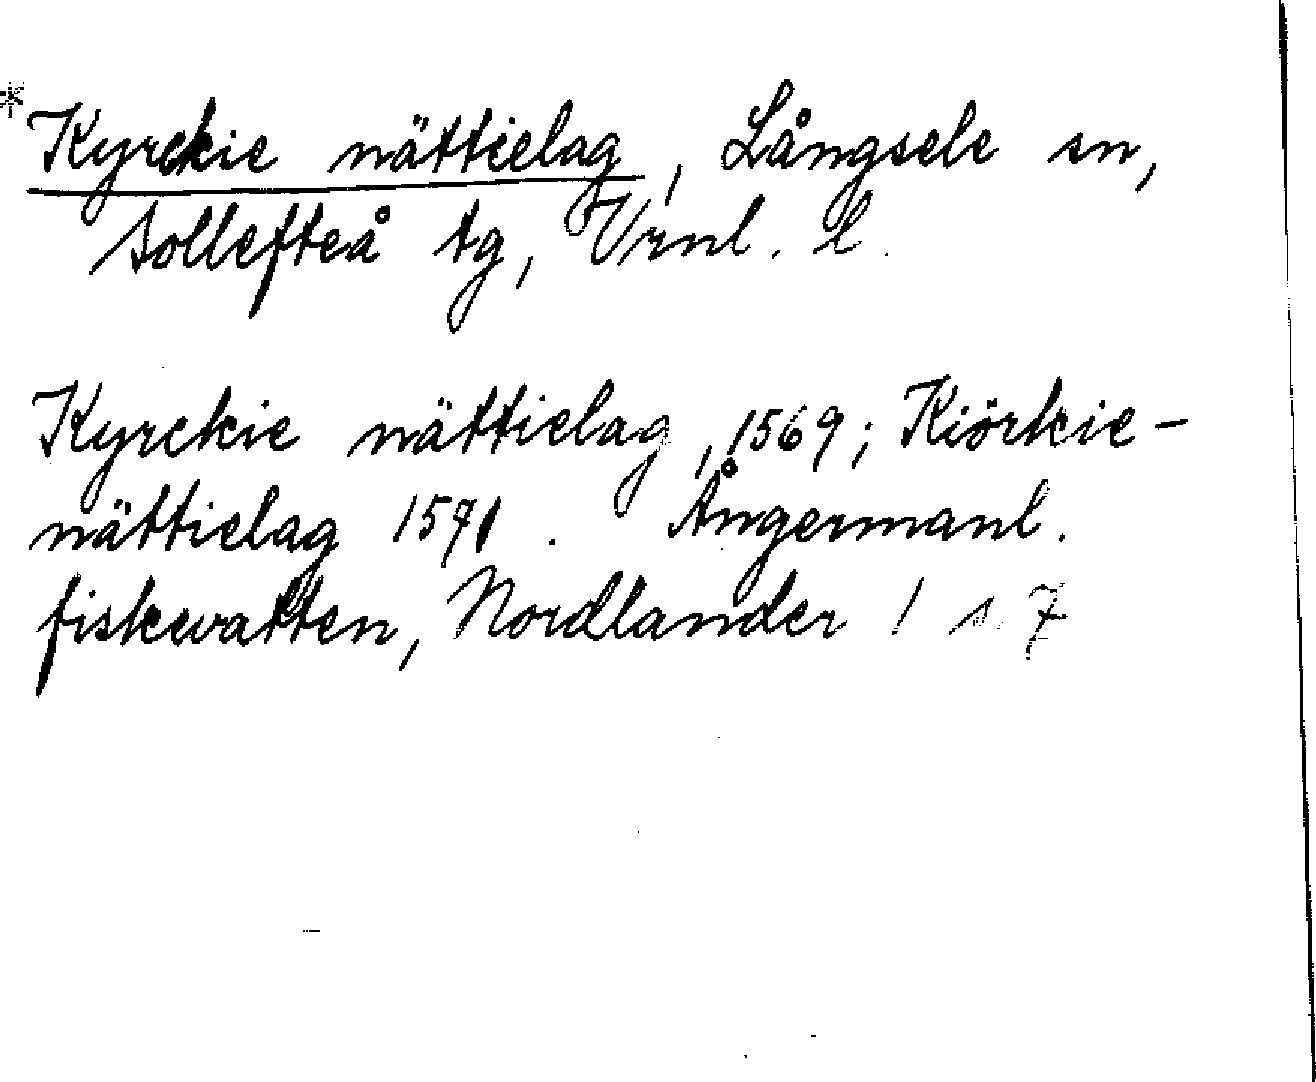 * Kyrckie nättielag, Långsele sn,
Sollefteå tg, Vrnl. l.
Kyrckie nättielag, 1569; Kiörkie-
nättielag 1571. Ångermanl.
fiskevatten, Nordlander 1 s. 7